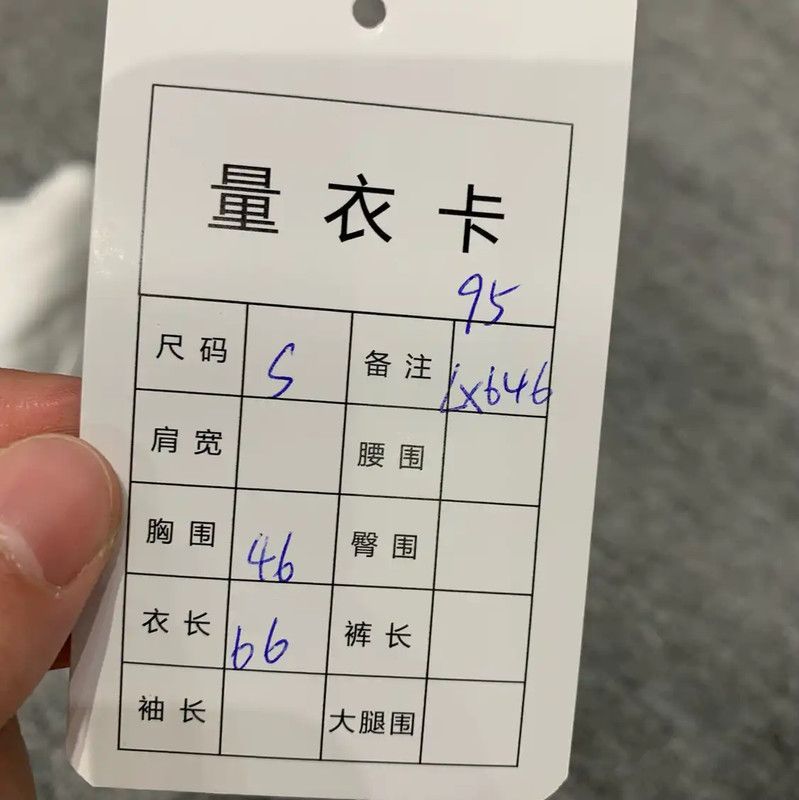 量衣卡
95
尺码 S 备注 LX646
肩宽 腰围
胸围 46 臀围
衣长 66 裤长
袖长 大腿围